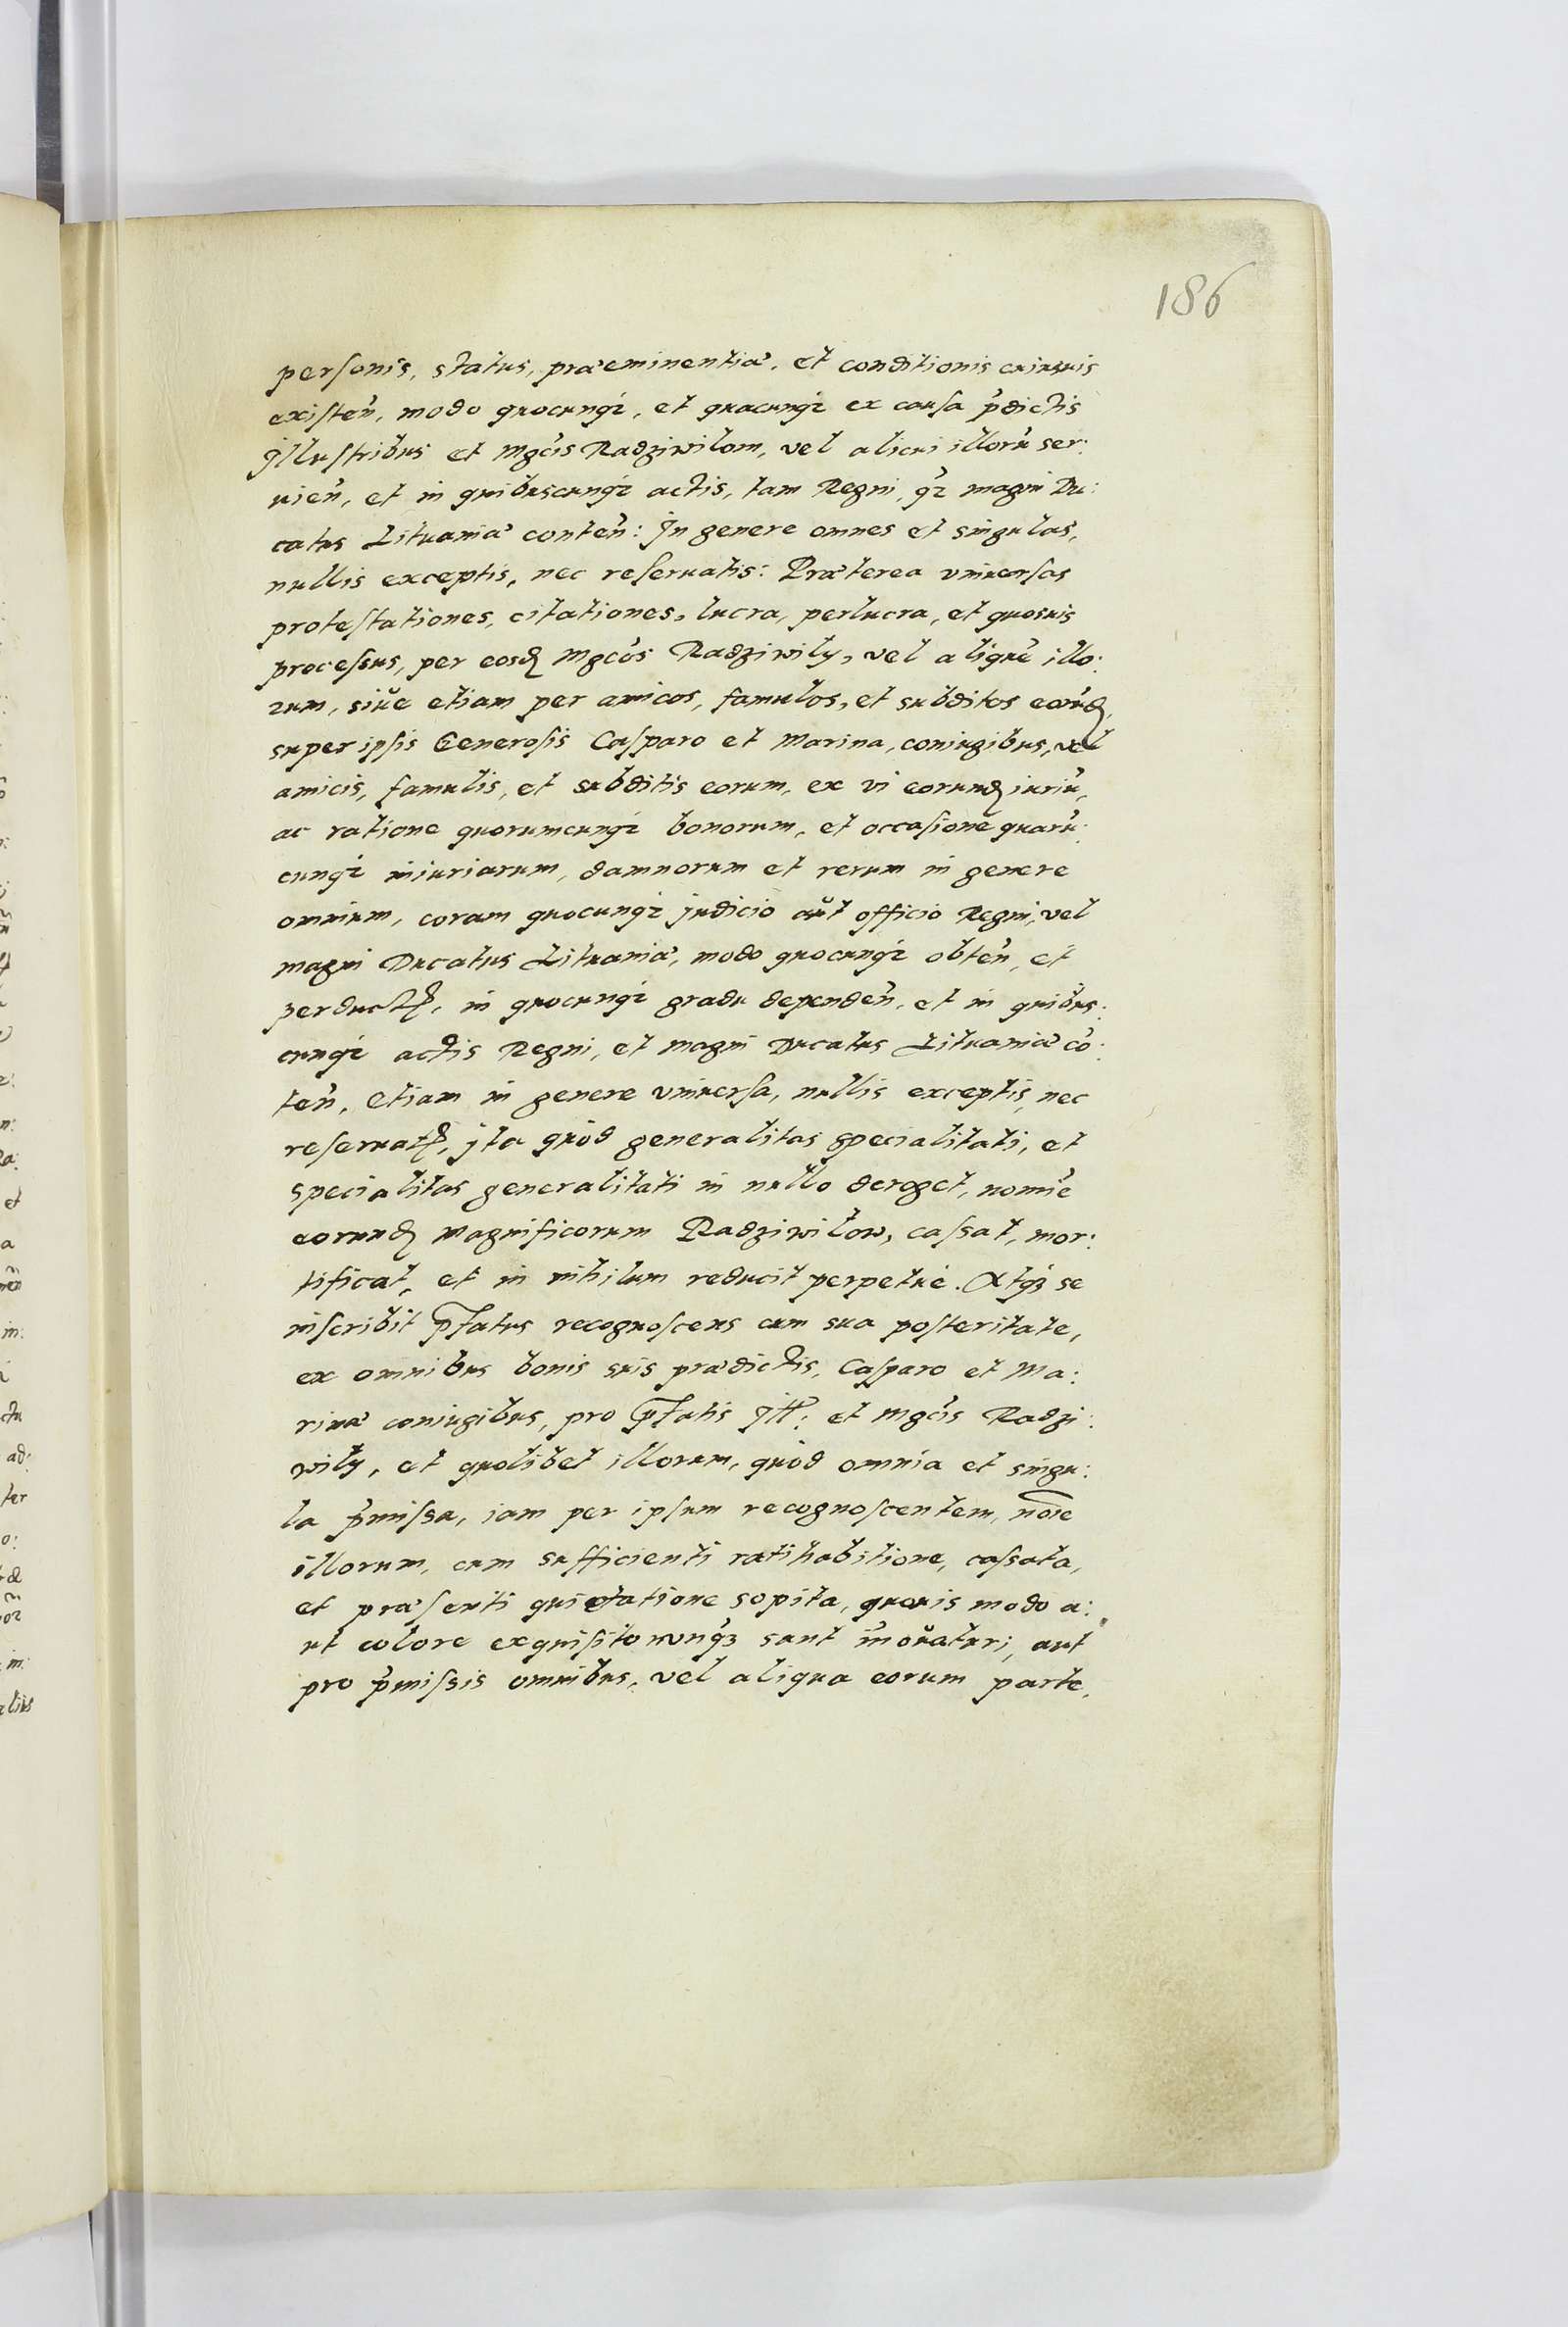 186
personis, status, præeminentiæ, et conditionis cuiusuis
existeñ, modo quocunqȝ, et quacunqȝ ex causa p̃dictis
Jllustribus et Mgcis Radziwilom, vel alicui illorũ ser:
uieñ, et in quibuscunqȝ actis, tam Regni, qȝ magni Du:
catus Lituaniæ conteñ: Jn genere omnes et singulas,
nullis exceptis, nec reseruatis: Præterea vniuersas
protestationes, citationes, lucra, perlucra, et quosuis
processus, per eosd̨ Mgcos Radziwily, vel aliquẽ illo:
rum, siue etiam per amicos, famulos, et subditos eorũd̨,
super ipsis Generosis Casparo et Marina, coniugibus, vel
amicis, famulis, et subditis eorum, ex vi eorumd̨ iuriũ,
ac ratione quorumcunqȝ bonorum, et occasione quarũ:
cunqȝ iniuriarum, damnorum et rerum in genere
omnium, coram quocunqȝ judicio aut officio Regni, vel
magni Ducatus Lituaniæ, modo quocunqȝ obteñ, et
perductꝭ, in quocunqȝ gradu dependeñ, et in quibus:
cunqȝ actis Regni, et magni Ducatus Lituaniæ cõ:
teñ, etiam in genere vniuersa, nullis exceptis, nec
reseruatꝭ, jta quòd generalitas specialitati, et
specialitas generalitati in nullo deroget, nomĩe
eorumd̨ Magnificorum Radziwilow, cassat, mor:
tificat, et in nihilum reducit perpetuè. Atqȝ se
inscribit p̃fatus recognoscens cum sua posteritate,
ex omnibus bonis suis prædictis, Casparo et Ma:
rinæ coniugibus, pro p̃fatis Jll: et Mgcis Radzi:
wily, et quolibet illorum, quòd omnia et singu:
la p̃missa, iam per ipsum recognoscentem, noĩe
illorum, cum sufficienti ratihabitione, cassata,
et præsenti quietatione sopita, quouis modo a:
ut colore exquisito nunqȝ sunt im̃ouaturi, aut
pro p̃missis omnibus, vel aliqua eorum parte,